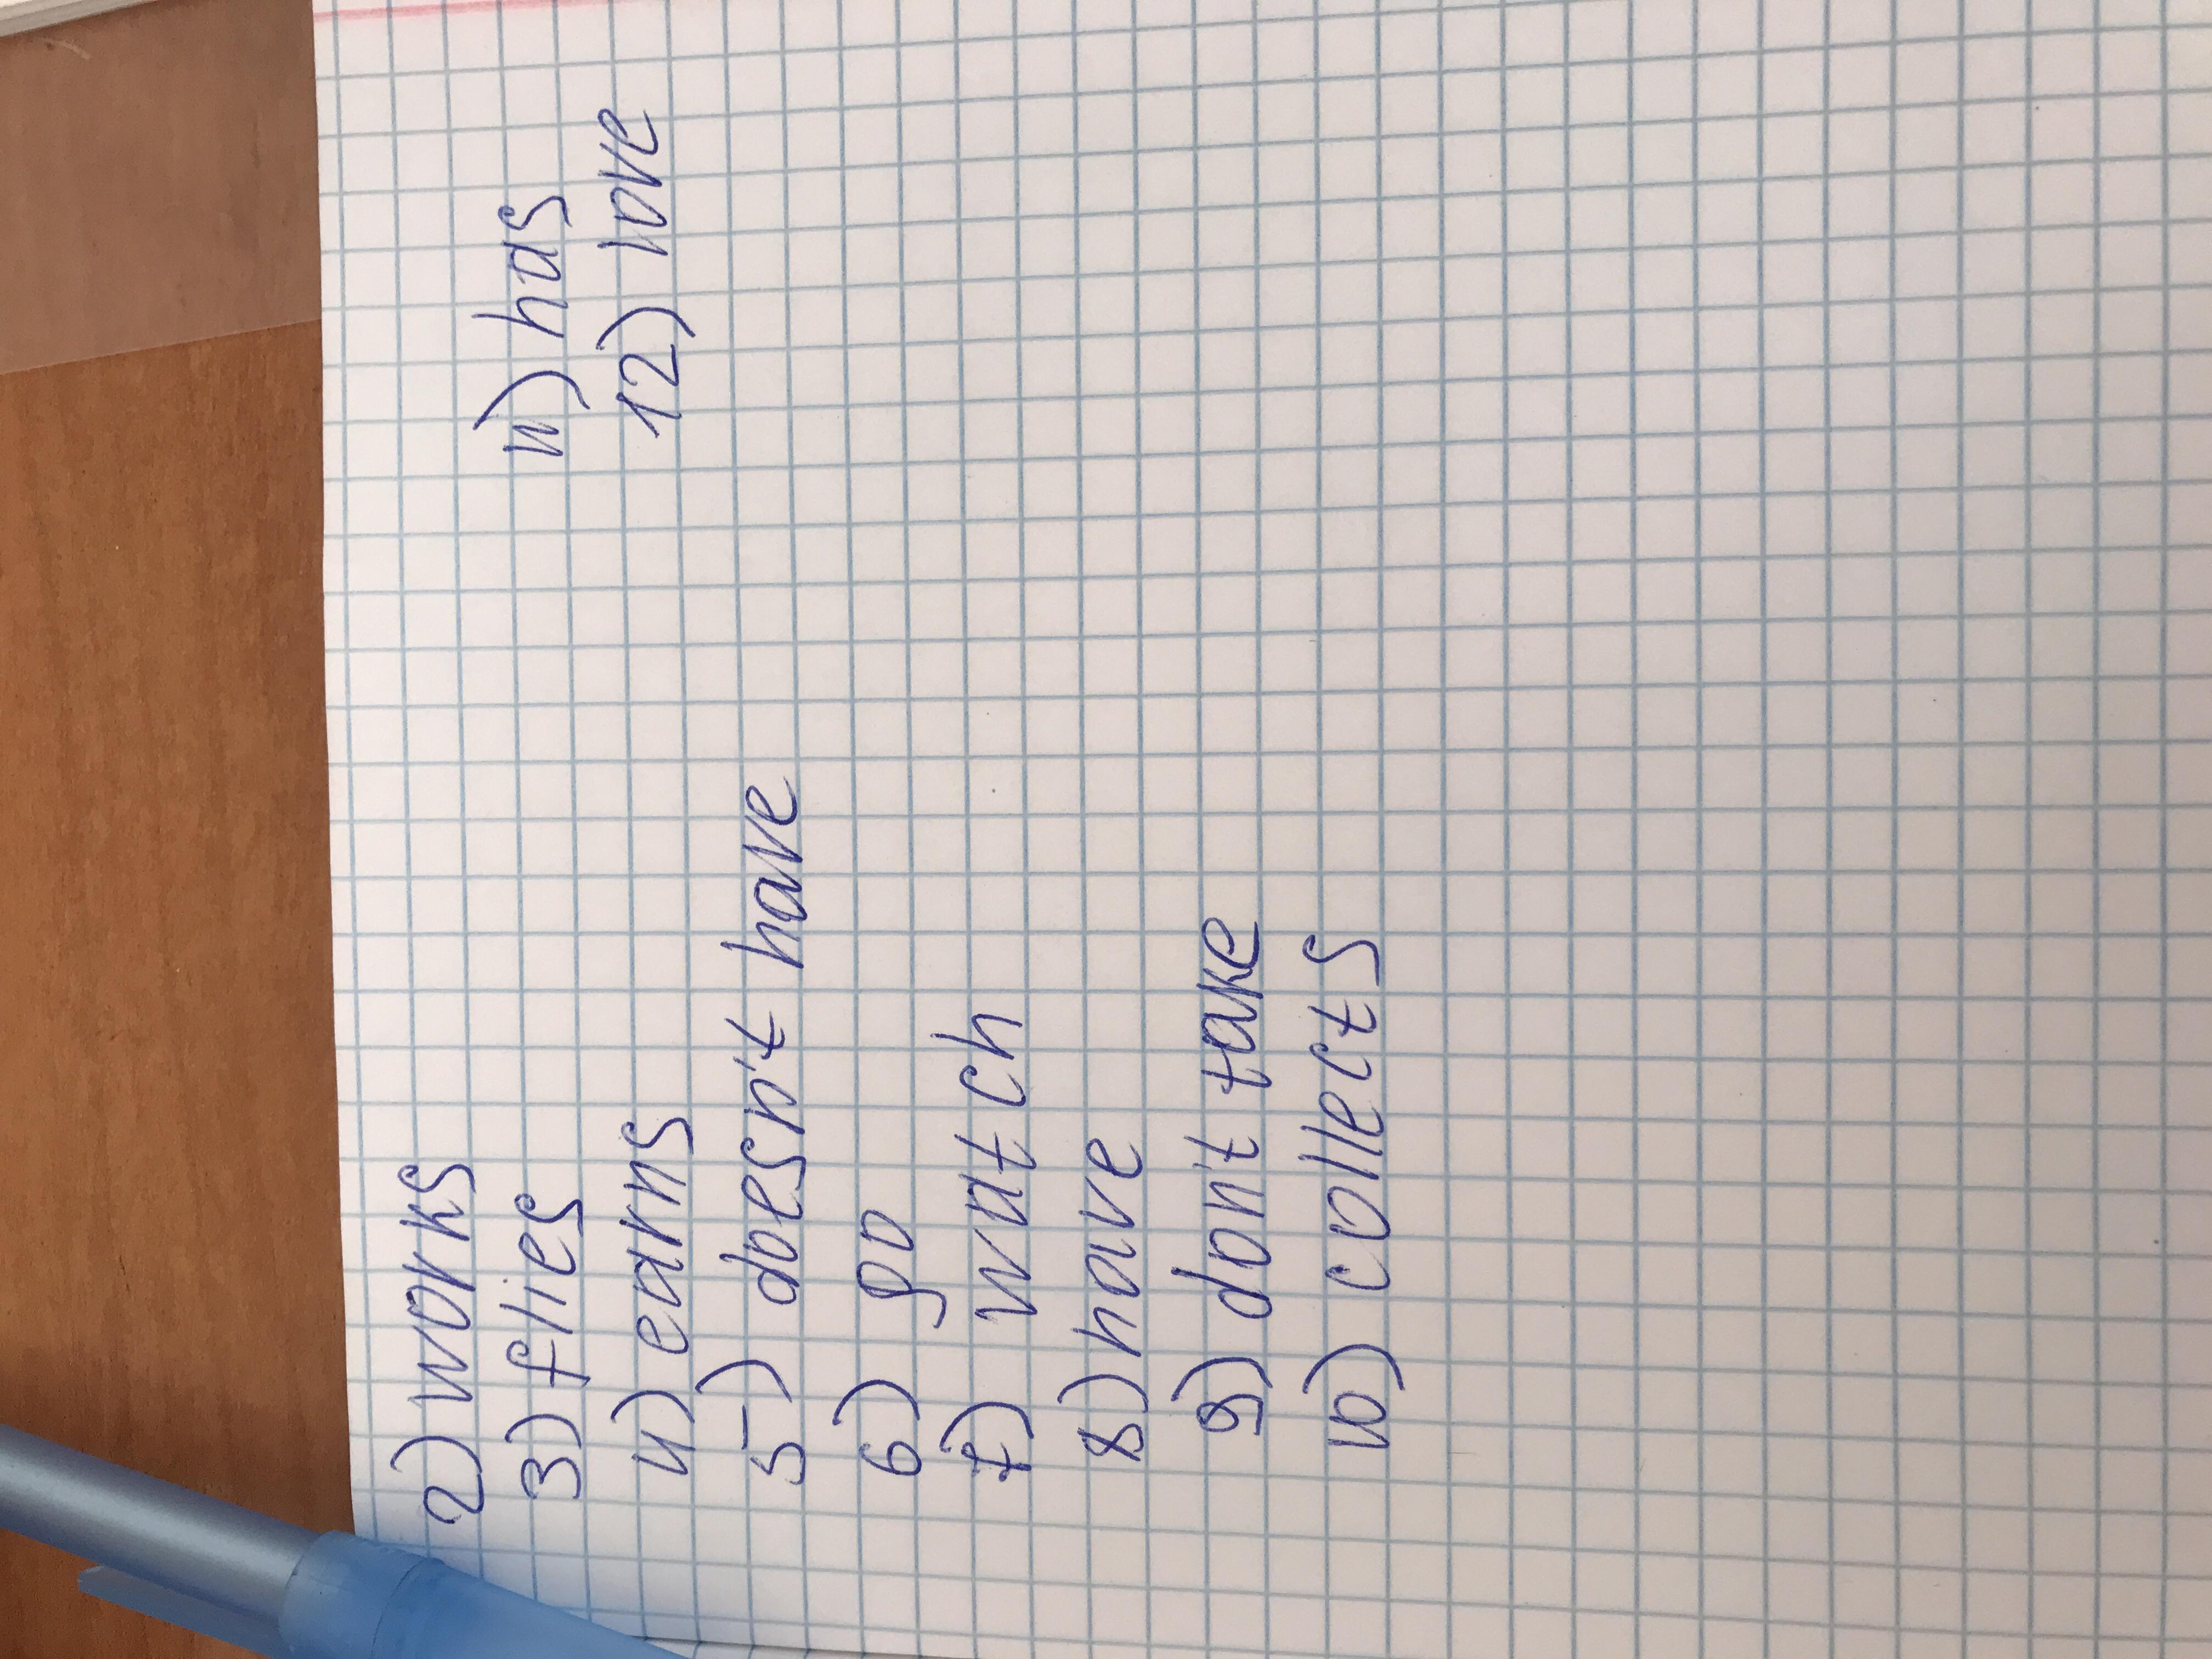 2) works
3) flies
4) earns
5) doesn't have
6) go
7) watch
8) have
9) don't take
10) collects
11) has
12) love